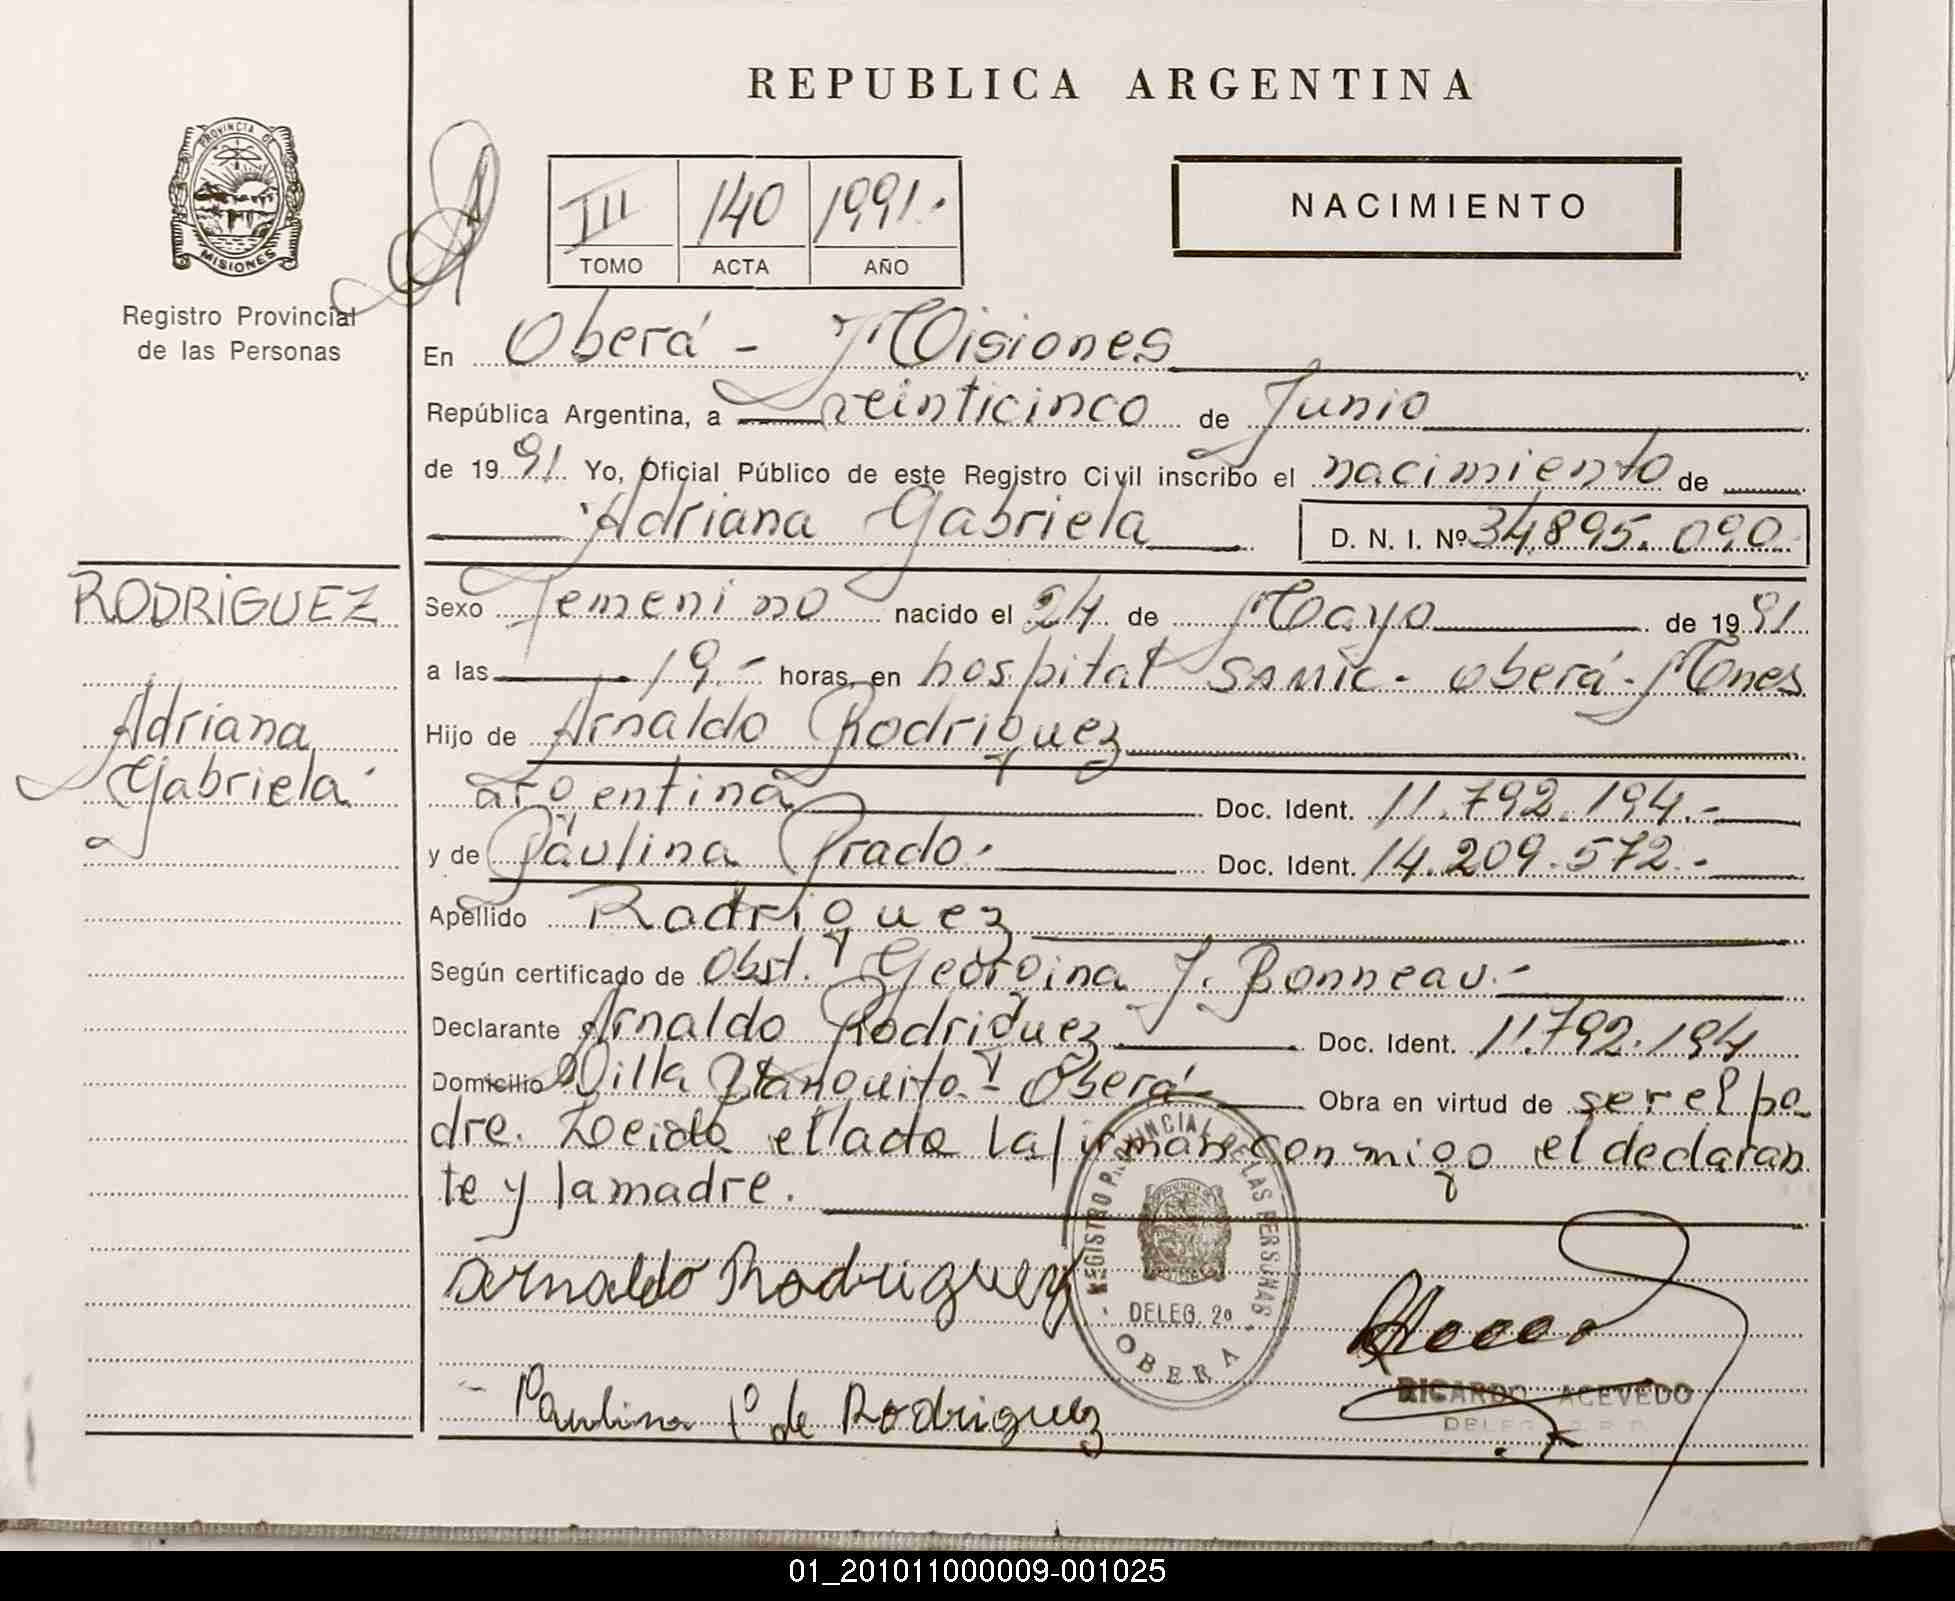 REPUBLICA ARGENTINA
PROVINCIA DE
MISIONES
Registro Provincial
de las Personas
III 140 1991.-
TOMO ACTA AÑO
NACIMIENTO
En Oberá - Misiones
República Argentina, a veinticinco de Junio
de 1991. Yo, Oficial Público de este Registro Civil inscribo el nacimiento de
Adriana Gabriela D. N. I. Nº 34.895.090.
RODRIGUEZ
Adriana
Gabriela
Sexo Femenino nacido el 24 de Mayo de 1991
a las 19.- horas, en hospital SAMIC - Oberá - Mnes
Hijo de Arnaldo Rodriguez
argentina Doc. Ident. 11.792.194.-
y de Paulina Prado.- Doc. Ident. 14.209.572.-
Apellido Rodriguez
Según certificado de Obst. Georgina J. Bonneau.-
Declarante Arnaldo Rodriguez Doc. Ident. 11.792.194
Domicilio Villa Oberá Obra en virtud de ser el pa
dre. Leida el la firman conmigo el declaran
te y la madre.
Arnaldo Rodriguez
REGISTRO PROVINCIAL DE LAS PERSONAS
DELEG. 2a
OBERA
RICARDO ACEVEDO
DELEG
- Paulina P de Rodriguez
01_201011000009-001025